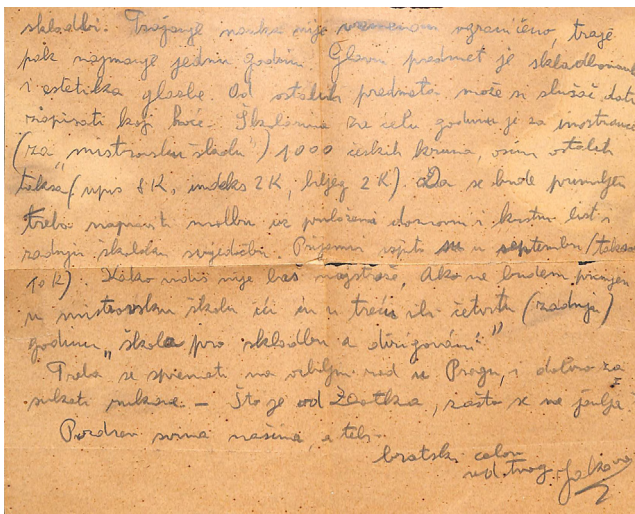 skladbi. Trajanje nauka nije vremenom ograničeno, traje
pak najmanje jednu godinu. Glavni predmet je skladbo
i estetika glazbe. Od ostalih predmeta može si slušač dati
zapisati koji hoće. Školarina za cijelu godinu je za inostrance
(za „mistrovsku školu") 1000 čeških kruna, osim ostalih
taksa (upis 8 K, indeks 2 K, biljeg 2 K). Da se bude primljen
treba napraviti molbu uz priloženi domovni i krsni list i
zadnju školsku svjedodžbu. Prijemni ispiti su u septembru (taksa
10 K). Kako vidiš nije baš najstrože. Ako ne budem primljen
u mistrovsku školu ići ću u treću ili četvrtu (zadnju)
godinu „škola pro skladbu a dirigování"
Treba se spremati na ozbiljan rad u Pragu, i dobro za
sukati rukave. — Što je od Zlatka, zašto se ne javlja.
Pozdrav svima našima, a tebi
bratski celov
od tvog